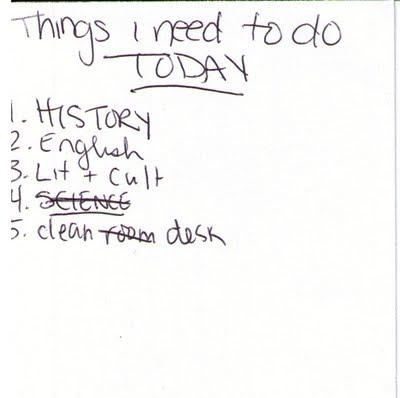 Things i need to do
TODAY
1. HISTORY
2. English
3. Lit + Cult
4. SCIENCE
5. clean room desk